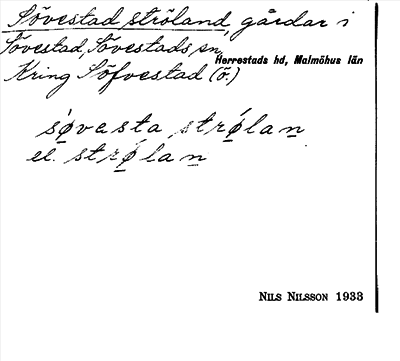 Sövestad ströland, gårdar i
Sövestad, Sövestads sn,
Herrestads hd, Malmöhus län
Kring Söfvestad (ö.)
sǿ̱vasta strǿ̱lan̲
el. strǿ̱lan̲
NILS NILSSON 1933